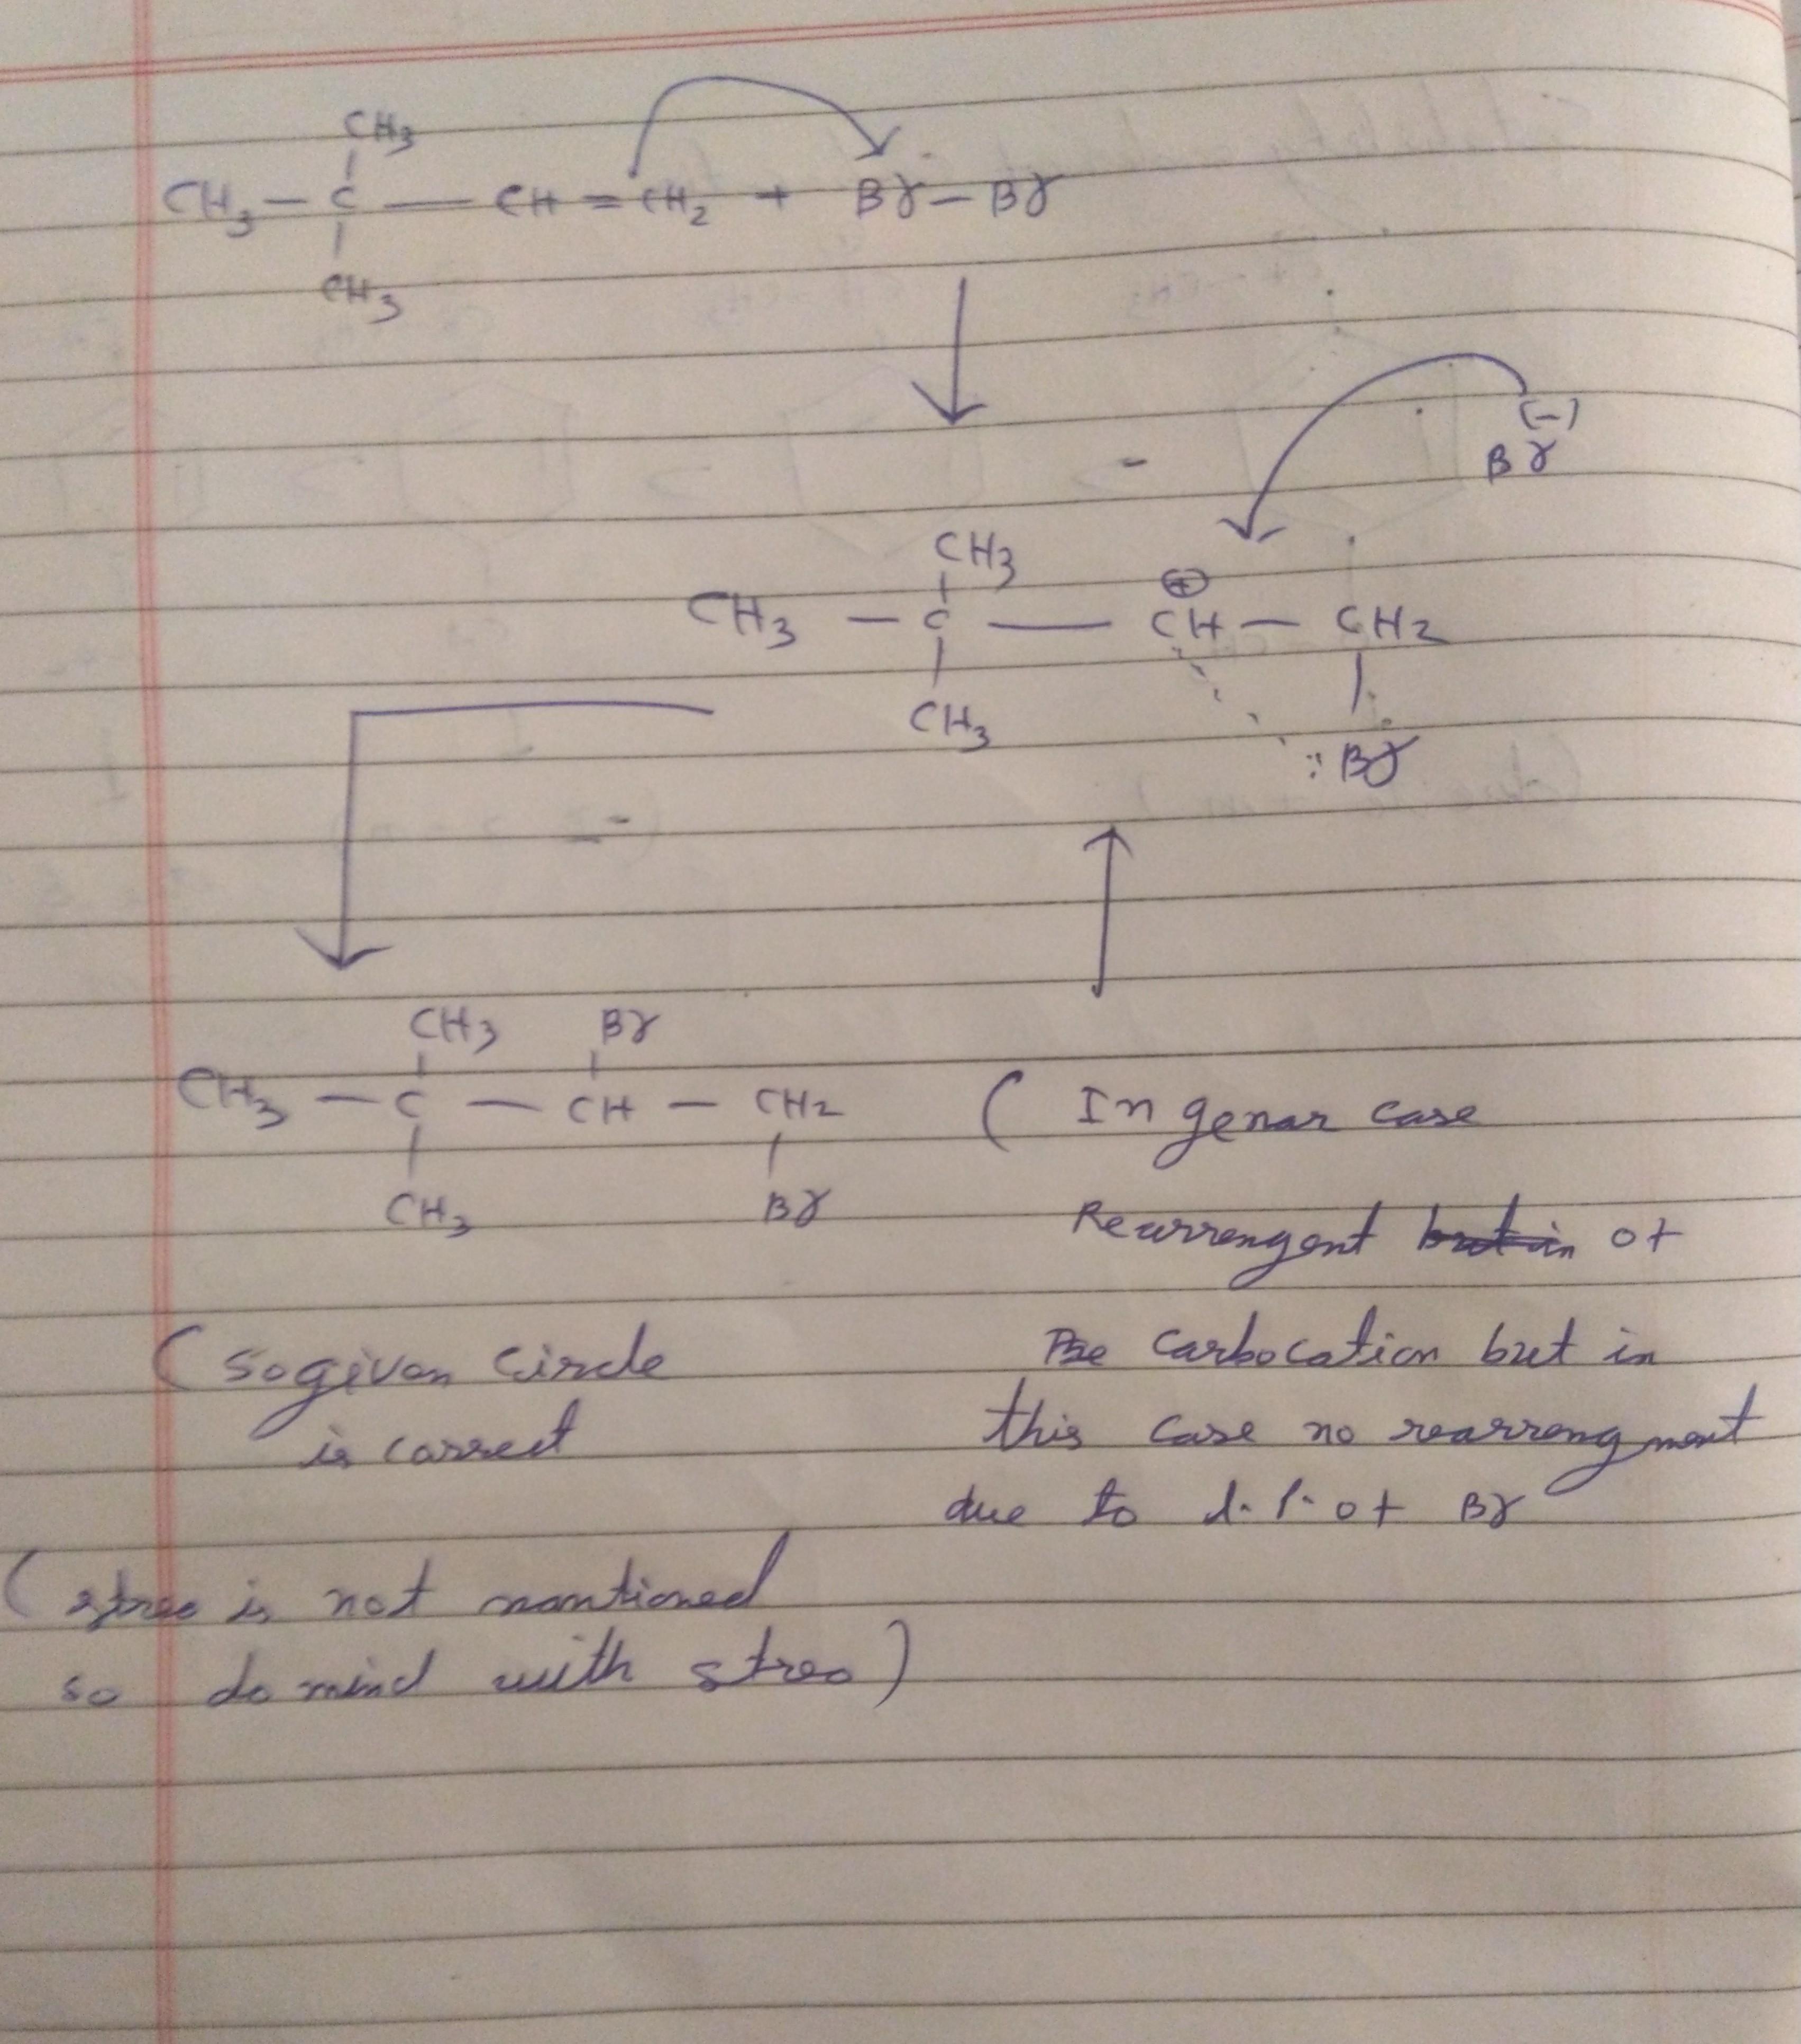 CH3
CH3 — C — CH = CH2 + Br — Br
CH3
(-)
Br
CH3
⊕
CH3 — C — CH — CH2
CH3
: Br
CH3 Br
CH3 — C — CH — CH2
CH3 Br
( In genar case
Rearrengent of
carbocation but in
this case no rearrengment
due to l.p. of Br
( so given circle
is correct
( streo is not mantioned
so do mind with streo )